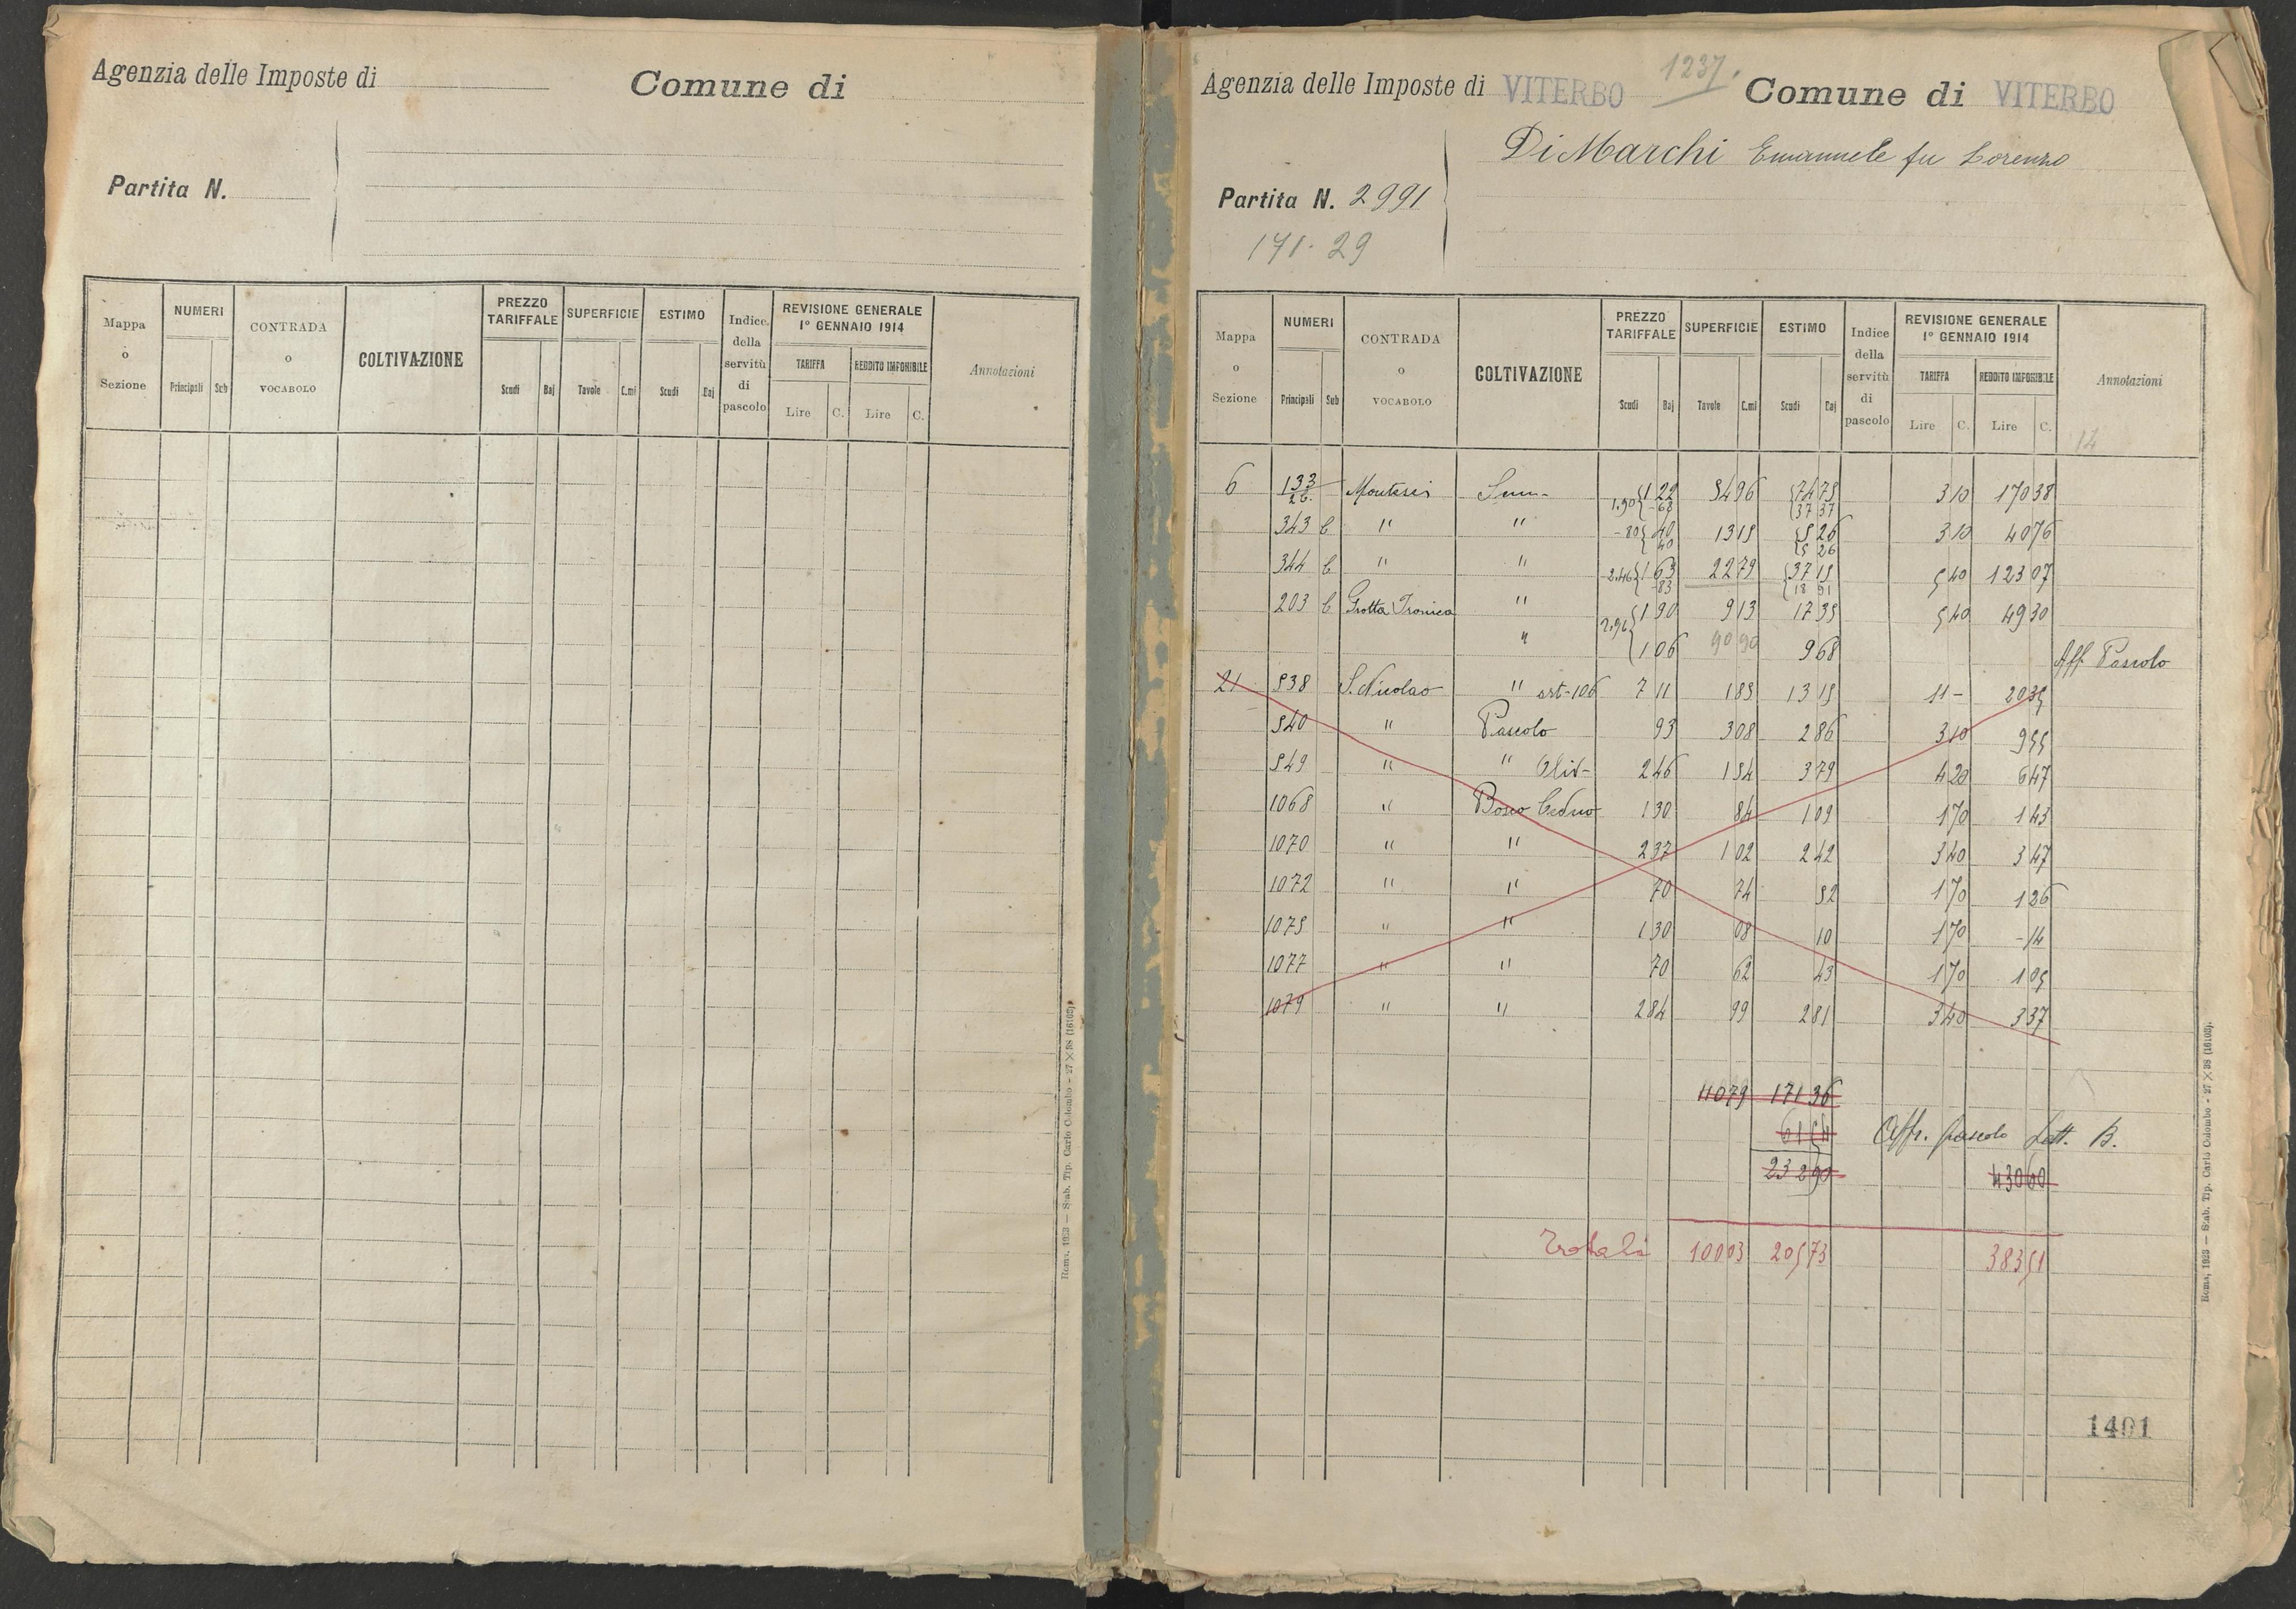 Agenzia delle Imposte di
Comune di
Partita N.
Mappa o Sezione
NUMERI
Principali Sub
CONTRADA o VOCABOLO
COLTIVAZIONE
PREZZO TARIFFALE
Scudi Baj
SUPERFICIE
Tavole C.mi
ESTIMO
Scudi Baj
Indice della servitù di pascolo
REVISIONE GENERALE
1° GENNAIO 1914
TARIFFA REDDITO IMPONIBILE
Lire C. Lire C.
Annotazioni
Roma, 1923 — Stab. Tip. Carlo Colombo - 27×38 (16103).
1237.
Agenzia delle Imposte di VITERBO Comune di VITERBO
Di Marchi Emanuele fu Lorenzo
Partita N. 2991
171.29
Mappa o Sezione
NUMERI
Principali Sub
CONTRADA o VOCABOLO
COLTIVAZIONE
PREZZO TARIFFALE
Scudi Baj
SUPERFICIE
Tavole C.mi
ESTIMO
Scudi Baj
Indice della servitù di pascolo
REVISIONE GENERALE
1° GENNAIO 1914
TARIFFA REDDITO IMPONIBILE
Lire C. Lire C.
Annotazioni
14
6 133/26 Sem- 1.90 { 1 22 54 96 { 74 75 3 10 170 38
- 68 37 37
343 b " " - 80 { 40 13 15 { 5 26 3 10 40 76
40 5 26
344 b " " 2.46 { 1 63 22 79 { 37 15 5 40 123 07
- 83 18 91
203 b Grotta " 2.96 { 1 90 9 13 17 35 5 40 49 30
" 1 06 90 90 9 68
Aff. Pascolo
21 538 S. Nicolao " ort-106 7 11 1 85 13 15 11 - 20 35
540 " Pascolo 93 3 08 2 86 3 10 9 55
549 " " Oliv- 2 46 1 54 3 79 4 20 6 47
1068 " Bosco Ceduo 1 30 84 1 09 1 70 1 43
1070 " " 2 37 1 02 2 42 3 40 3 47
1072 " " 70 74 52 1 70 1 26
1075 " " 1 30 08 10 1 70 - 14
1077 " " 70 62 43 1 70 1 05
1079 " " 2 84 99 2 81 3 40 3 37
110 79 171 36
61 54 Affr. pascolo Lett. B.
232 90 430 60
Totali 100 03 205 73 383 51
1401
Roma, 1923 — Stab. Tip. Carlo Colombo - 27×38 (16103).